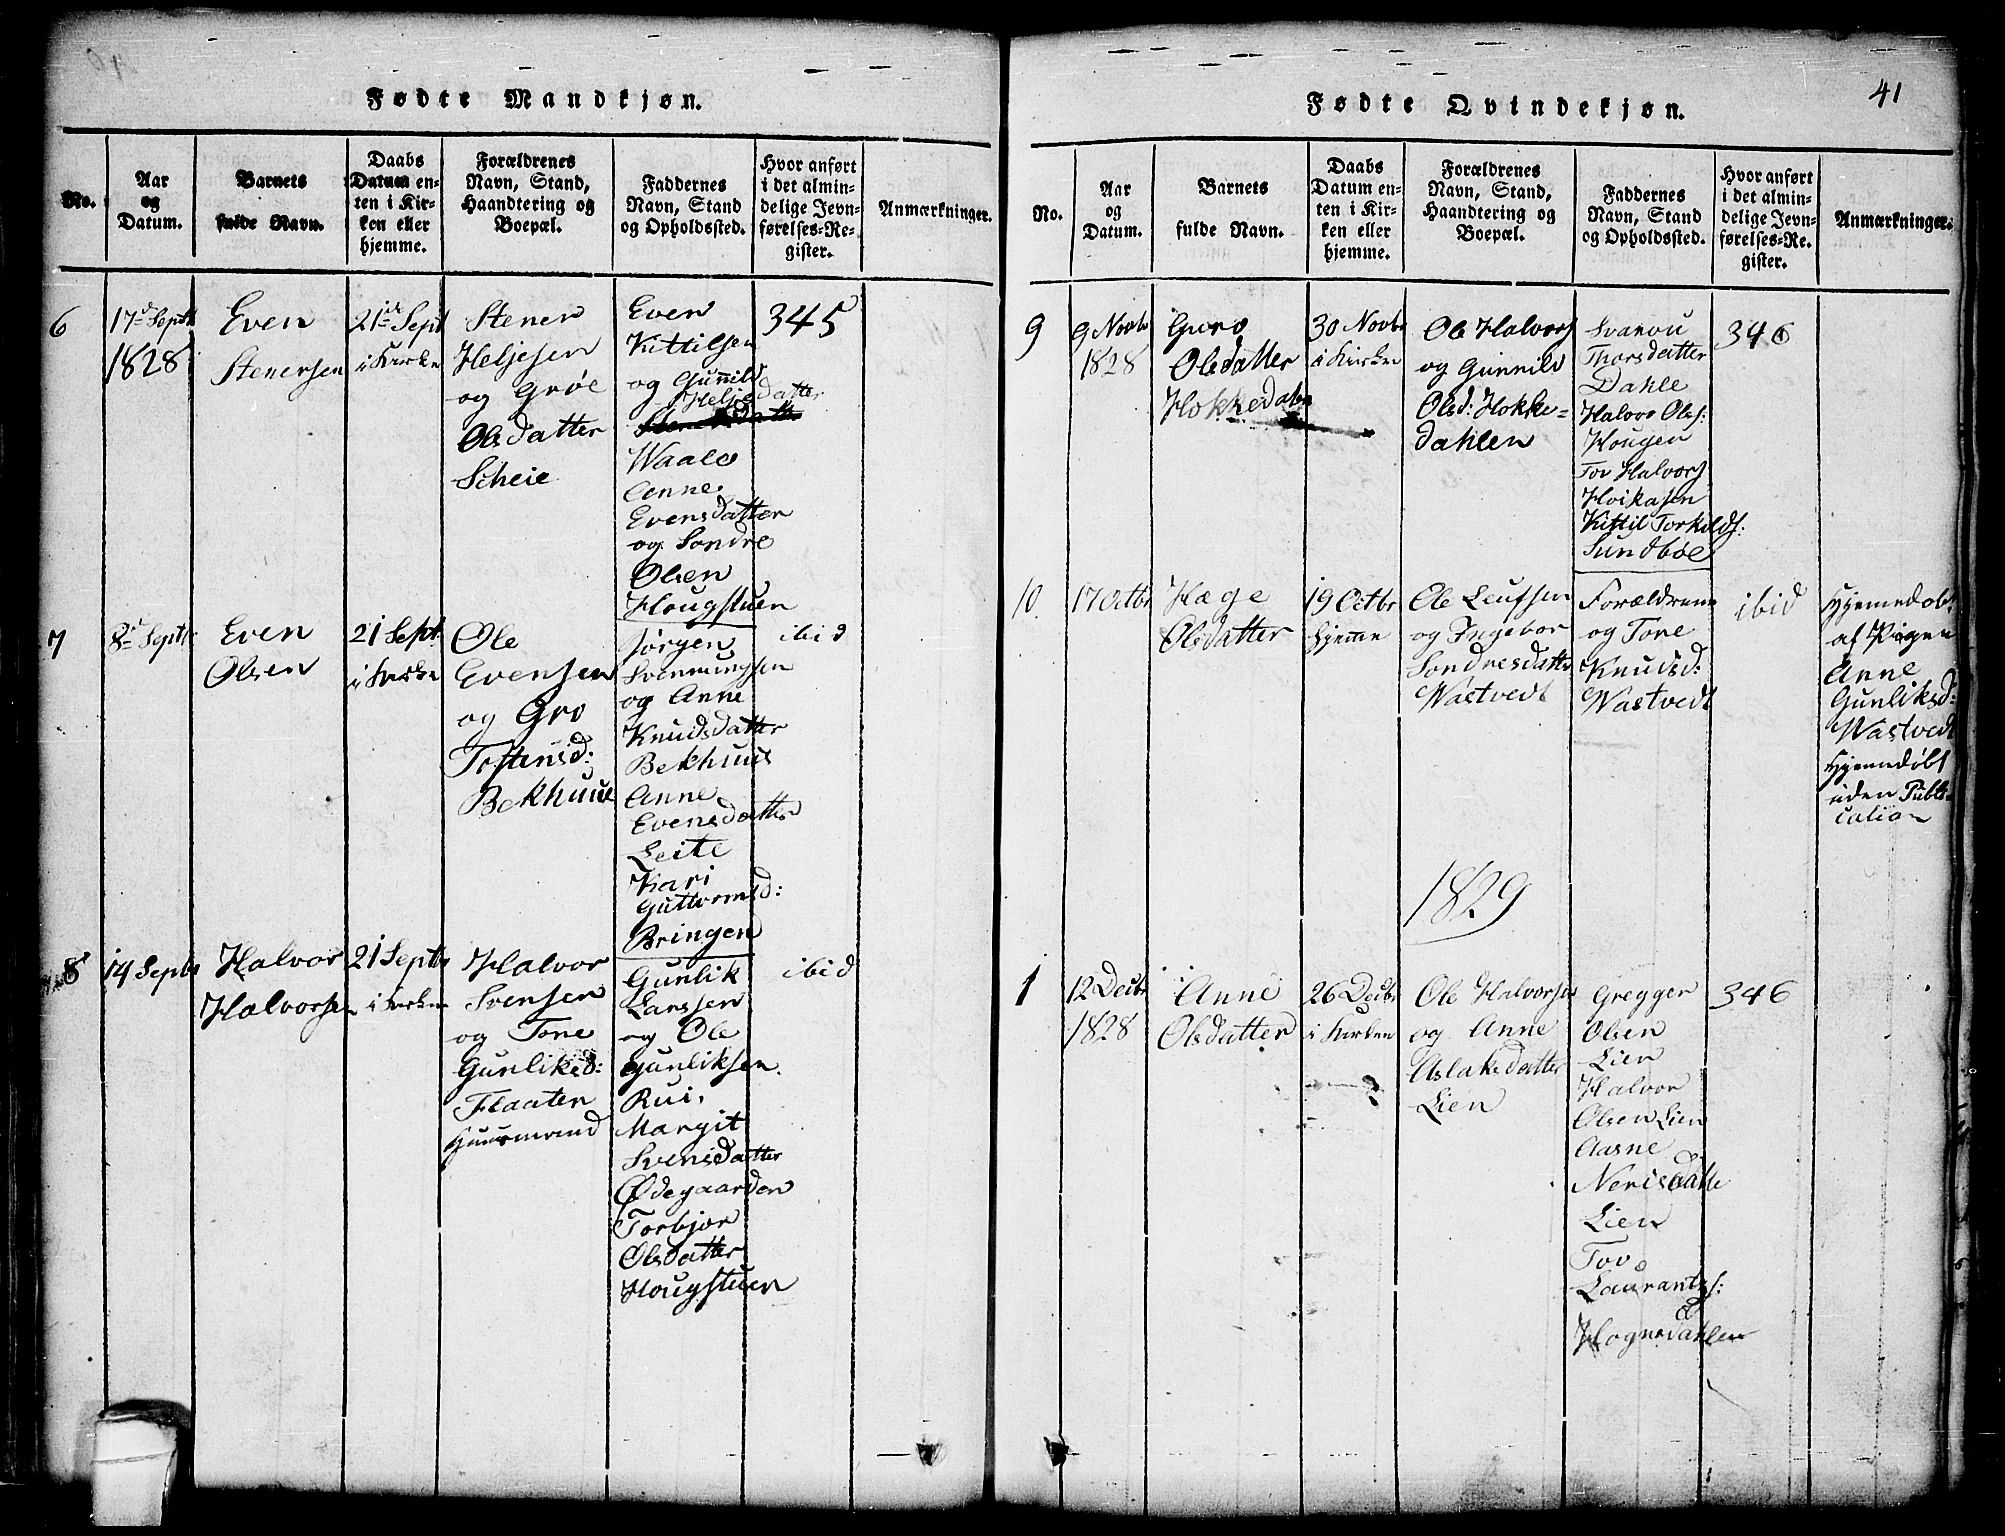 Fødte Mandkjøn.
No.
Aar
og
Datum.
Barnets
fulde Navn.
Daabs
Datum en-
ten i Kir-
ken eller
hjemme.
Forældrenes
Navn, Stand,
Haandtering og
Boepæl.
Faddernes
Navn, Stand
og Opholdssted.
Hvor anført
i det almin-
delige Jevn-
førelses-Re-
gister.
Anmærkninger.
6
17d Septr
1828
Even
Stenersen
21de Sept
i Kirken
Stener
Heljesen
og Grøe
Olsdatter
Scheie
Even
Kittilsen
og Gunnild
Heljedatter
Waale
Anne
Evensdatter
og Sondre
Olsen
Hougstuen
345
7
8d Septr
Even
Olsen
21 Sept.
i Kirken
Ole
Evensen
og Gro
Tostensd:
Bekhuus
Jørgen
Svennungsen
og Anne
Knudsdatter
Bekhuus
Anne
Evensdatter
Leite
Kari
Guttormsd:
Bringen
ibid
8
14 Septr
Halvor
Halvorsen
21 Septr
i Kirken
Halvor
Svensen
og Tone
Gunliksd:
Flaaten
Huusmand
Gunlik
Larssen
og Ole
Gunliksen
Rui,
Margit
Svensdatter
Ødegaarden
Torbjør
Olsdatter
Hougstuen
ibid
Fødte Qvindekjøn.
41
No.
Aar
og
Datum.
Barnets
fulde Navn.
Daabs
Datum en-
ten i Kir-
ken eller
hjemme.
Forældrenes
Navn, Stand,
Haandtering og
Boepæl.
Faddernes
Navn, Stand
og Opholdssted.
Hvor anført
i det almin-
delige Jevn-
førelses-Re-
gister.
Anmærkninger.
9
9 Novbr
1828
Guro
Olsdatter
Hokkedalen
30 Novbr
i Kirken
Ole Halvors
og Gunnild
Olsd: Hokke=
dahlen
Svanou
Thorsdatter
Dahle
Halvor Ols:
Hougen
Tov Halvors
Hvikasen
Kittil Torkilds:
Sundbøe
346
10.
17 Octbr
Hæge
Olsdatter
19 Octbr
hjemme
Ole Leufsen
og Ingebor
Sondresdatter
Wastvedt
Forældrene
og Tone
Knudsd:
Wastvedt
ibid
Hjemmedøbt
af Pigen
Anne
Gunliksd:
Wastvedt
Hjemmedøbt
uden Publi-
cation
1829
1
12 Decbr
1828
Anne
Olsdatter
26 Decbr
i Kirken
Ole Halvorsen
og Anne
Aslaksdatter
Lien
Gregger
Olsen
Lien
Halvor
Olsen Lien
Aasne
Nerisdatte
Lien
Tov
Laurantzs:
Hognedahlen
346